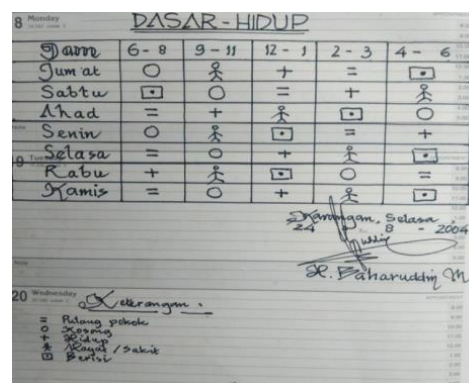 8 Monday
DASAR-HIDUP
Daum 6-8 9-11 12-1 2-3 4-6
Jum'at O 웃 + = ⊡
Sabtu ⊡ O = + 웃
Ahad = + 웃 ⊡ O
Senin O 웃 ⊡ = +
Selasa = O + 웃 ⊡
Rabu + 웃 ⊡ O =
Kamis = O + 웃 ⊡
Karangan, Selasa
24 - 8 - 2004
H. Baharuddin M
20 Wednesday
Keterangan :
= Pulang pokok
O Kosong
+ Hidup
웃 Mayat / Sakit
⊡ Berisi